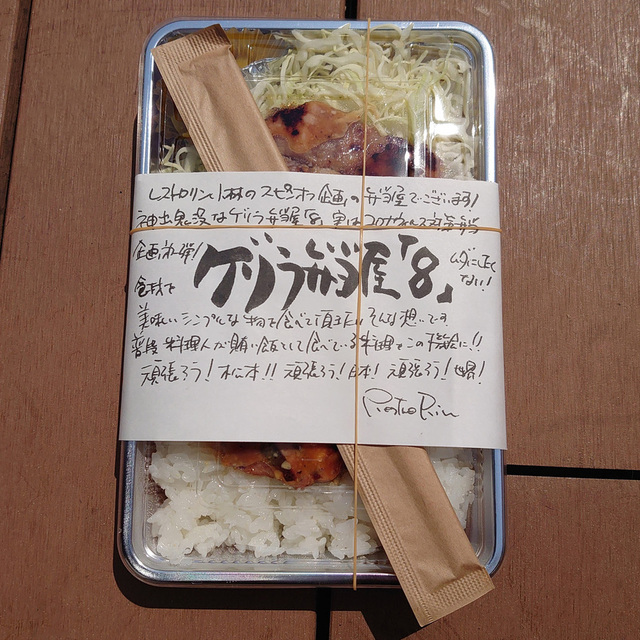 レストロリン小林のスピンオフ企画の弁当屋でございます!
神出鬼没なゲリラ弁当屋「8」実はコロナウィルス対策弁当
企画第1弾!
ゲリラ弁当屋「8」
ムダに正しくない!
食材で
美味しいシンプルな物を食べて頂きたいそんな想いです
普段料理人が賄い飯として食べている料理をこの機会に!!
頑張ろう!松本!!頑張ろう!日本!頑張ろう!世界!